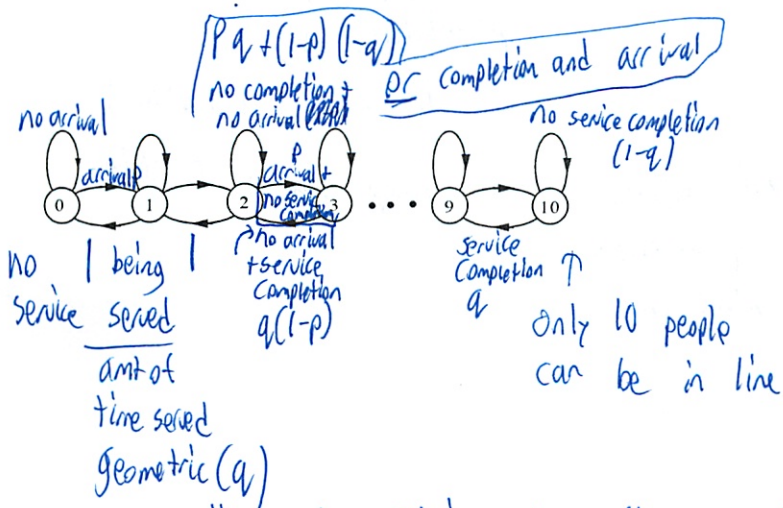 pq + (1-p)(1-q)
no completion +
no arrival
or completion and arrival
no arrival
no service completion
(1-q)
arrival p
p
arrival +
no service
completion
0 1 2 3 • • • 9 10
no arrival
+ service
completion
q(1-p)
service
completion
q
no
service
1 being
served
amt of
time served
geometric (q)
↑
only 10 people
can be in line